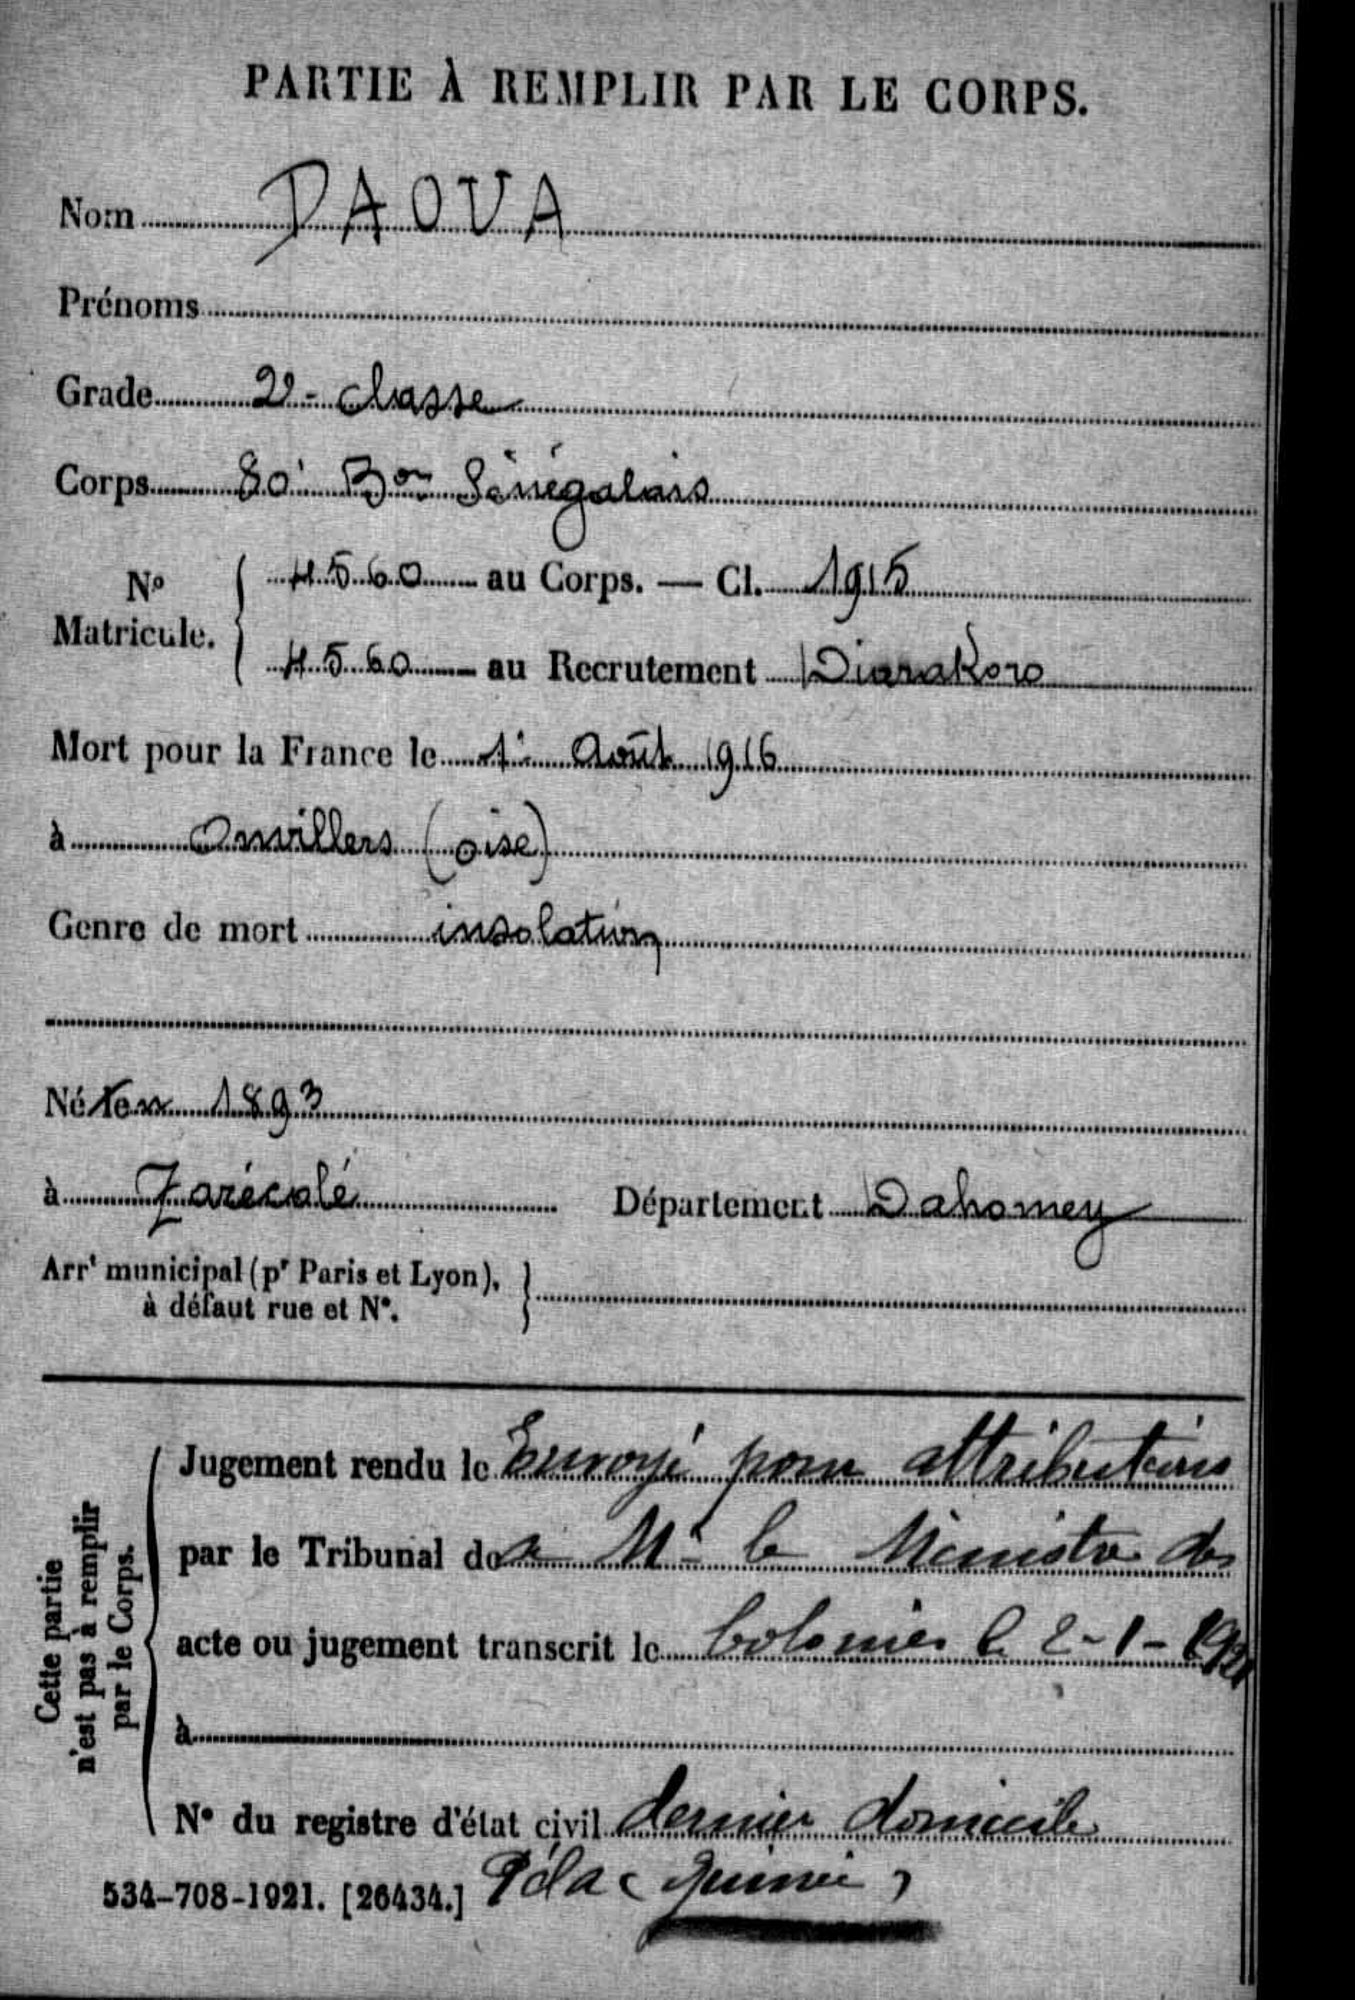 PARTIE À REMPLIR PAR LE CORPS.
Nom DAOUA
Prénoms
Grade 2e - classe
Corps 80e Bon Sénégalais
No Matricule. 4560 au Corps. — Cl. 1915
4560 au Recrutement Diarakoro
Mort pour la France le 1er Août 1916
à Onvillers (oise)
Genre de mort insolation
Né le en 1893
à Zarécolé Département Dahomey
Arrt municipal (pr Paris et Lyon), à défaut rue et No.
Cette partie n'est pas à remplir par le Corps.
Jugement rendu le Envoyé pour attributions
par le Tribunal de à Mr le Ministre des
acte ou jugement transcrit le Colonies le 2-1-
à
No du registre d'état civil dernier domicile
534-708-1921. [26434.] Péla (Guinée)